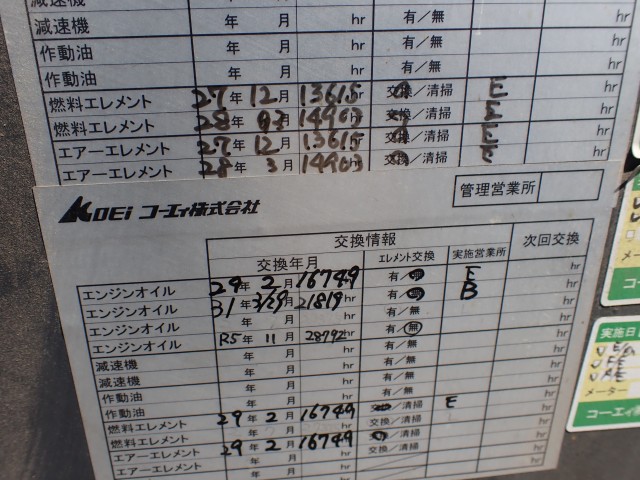 減速機 年 月 hr 有／無 hr
作動油 年 月 hr 有／無 hr
作動油 年 月 hr 有／無 hr
燃料エレメント 27年 12月 13615hr 交換／清掃 E hr
燃料エレメント 28年 月 hr 交換／清掃 E hr
エアーエレメント 27年 12月 13615hr 交換／清掃 E hr
エアーエレメント 28年 3月 hr 交換／清掃 E hr
KOEi コーエィ株式会社
管理営業所
交換情報
次回交換
交換年月 エレメント交換 実施営業所
エンジンオイル 29年 2月 16749hr 有／無 E hr
エンジンオイル 31年 3/29月 21819hr 有／無 B hr
エンジンオイル 年 月 hr 有／無 hr
エンジンオイル R5年 11月 28792hr 有／無 hr
減速機 年 月 hr 有／無 hr
減速機 年 月 hr 有／無 hr
作動油 年 月 hr 有／無 hr
作動油 年 月 hr 有／無 hr
燃料エレメント 29年 2月 16749hr 交換／清掃 E hr
燃料エレメント 年 月 hr 交換／清掃 hr
エアーエレメント 29年 2月 16749hr 交換／清掃 hr
エアーエレメント 年 月 hr 交換／清掃 hr
メーター
コーエ
実施日
メーター
コーエィ